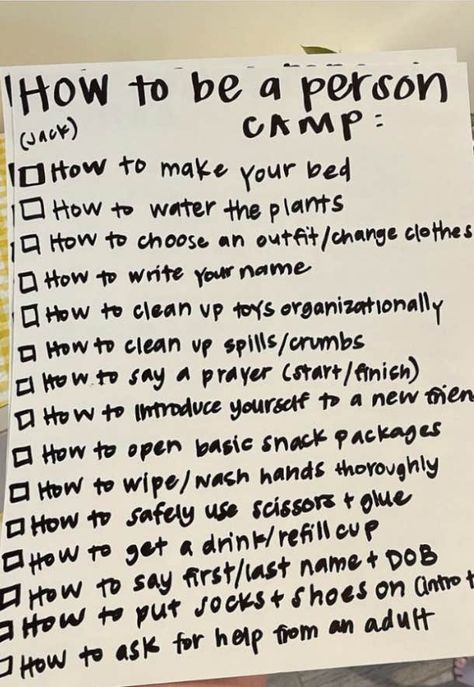 How to be a person
(JACK) CAMP:
How to make your bed
How to water the plants
How to choose an outfit/change clothes
How to write your name
How to clean up toys organizationally
How to clean up spills/crumbs
How to say a prayer (start/finish)
How to introduce yourself to a new frien
How to open basic snack packages
How to wipe/wash hands thoroughly
How to safely use scissors + glue
How to get a drink/refill cup
How to say first/last name + DOB
How to put socks + shoes on (intro t
How to ask for help from an adult